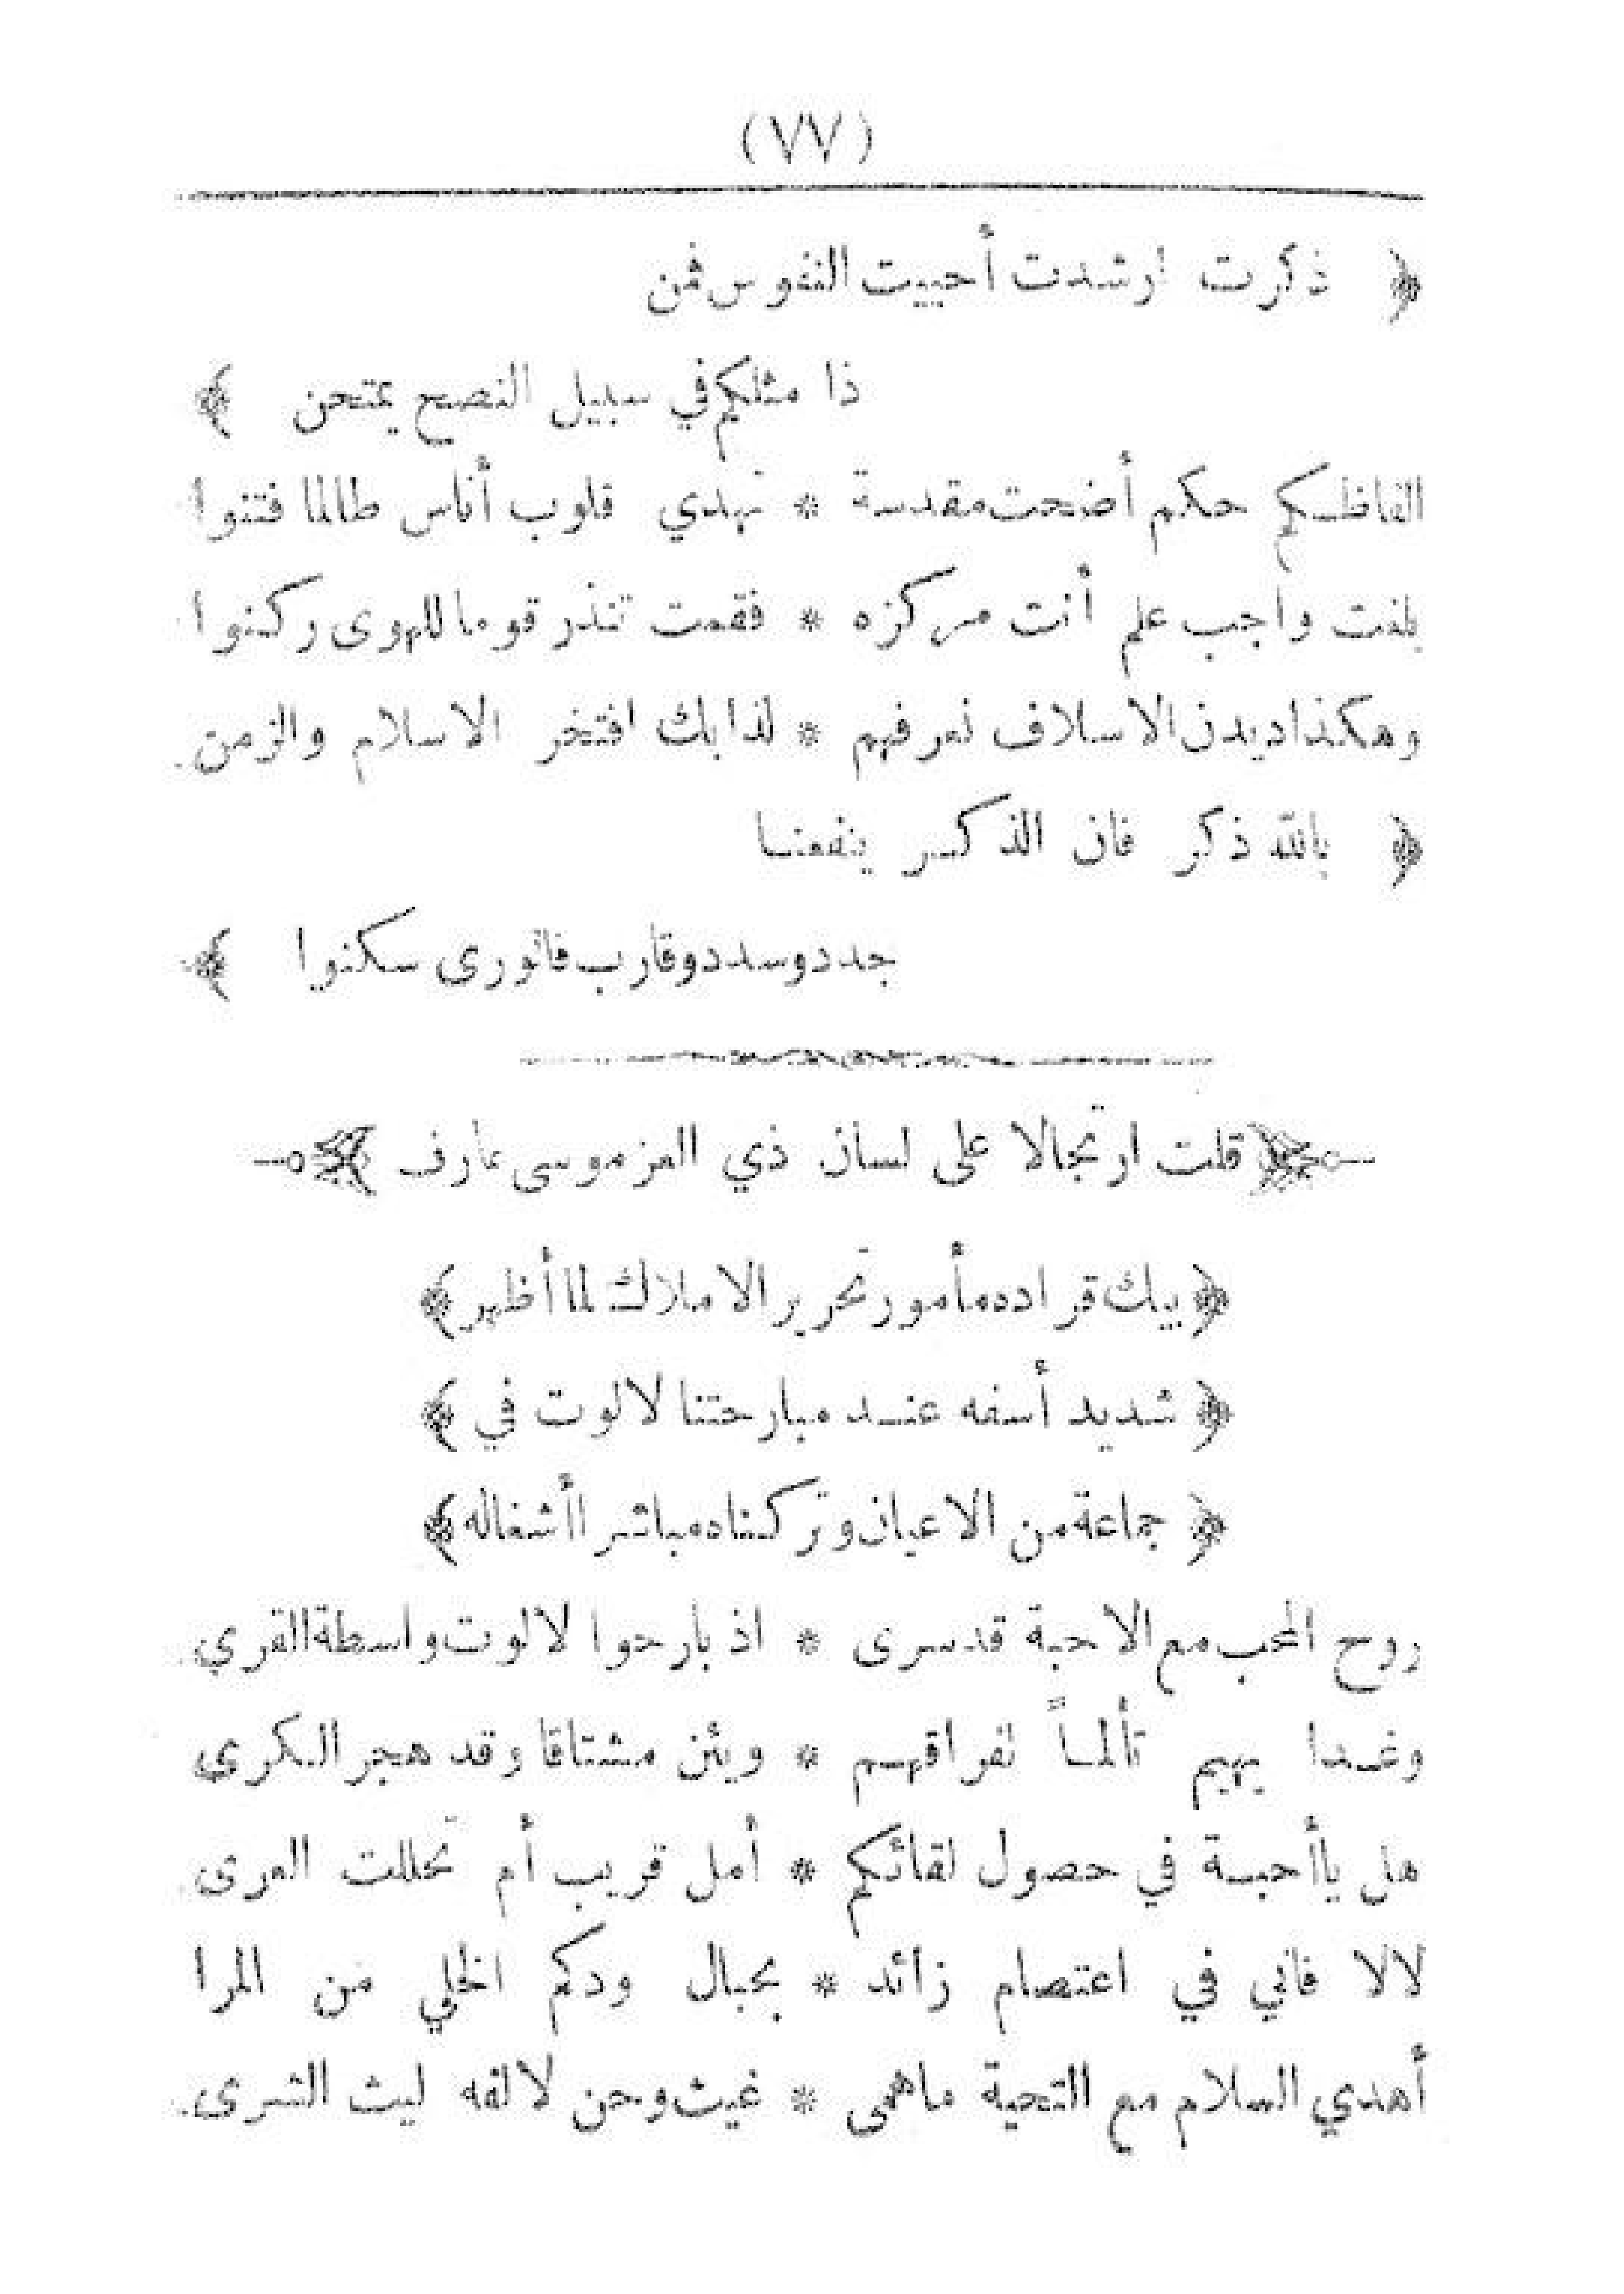 (٧٧)
﴿ ذكرت ارشدت أحييت النفوس فمن
ذا مثلكم في سبيل النصح يمتحن ﴾
الفاظكم حكم أضحت مقدسة * تهدي قلوب أناس طالما فتنوا
بلغت واجب علم أنت مركزه * فقمت تنذر قوما للهوى ركنوا
وهكذا ديدن الاسلاف نعرفهم * لذا بك افتخر الاسلام والزمن
﴿ بالله ذكر فان الذكر ينفعنا
جدد وسدد وقارب فالورى سكنوا ﴾
﴿ قلت ارتجالا على لسان ذي العز موسى عارف ﴾
﴿ بيك قراده مأمور تحرير الاملاك لما أظهر ﴾
﴿ شديد أسفه عند مبارحتنا لالوت في ﴾
﴿ جماعة من الاعيان وتركناه مباشرا أشغاله ﴾
روح المحب مع الاحبة قد سرى * اذ بارحوا لالوت واسطة القرى
وغدا يهيم تألماً لفراقهم * ويئن مشتاقا وقد هجر الكرى
هل يا أحبة في حصول لقائكم * أمل قريب أم تحللت العرى
لالا فاني في اعتصام زائد * بحبال ودكم الخلي من المرا
أهدي السلام مع التحية ما همى * غيث وحن لالفه ليث الشرى